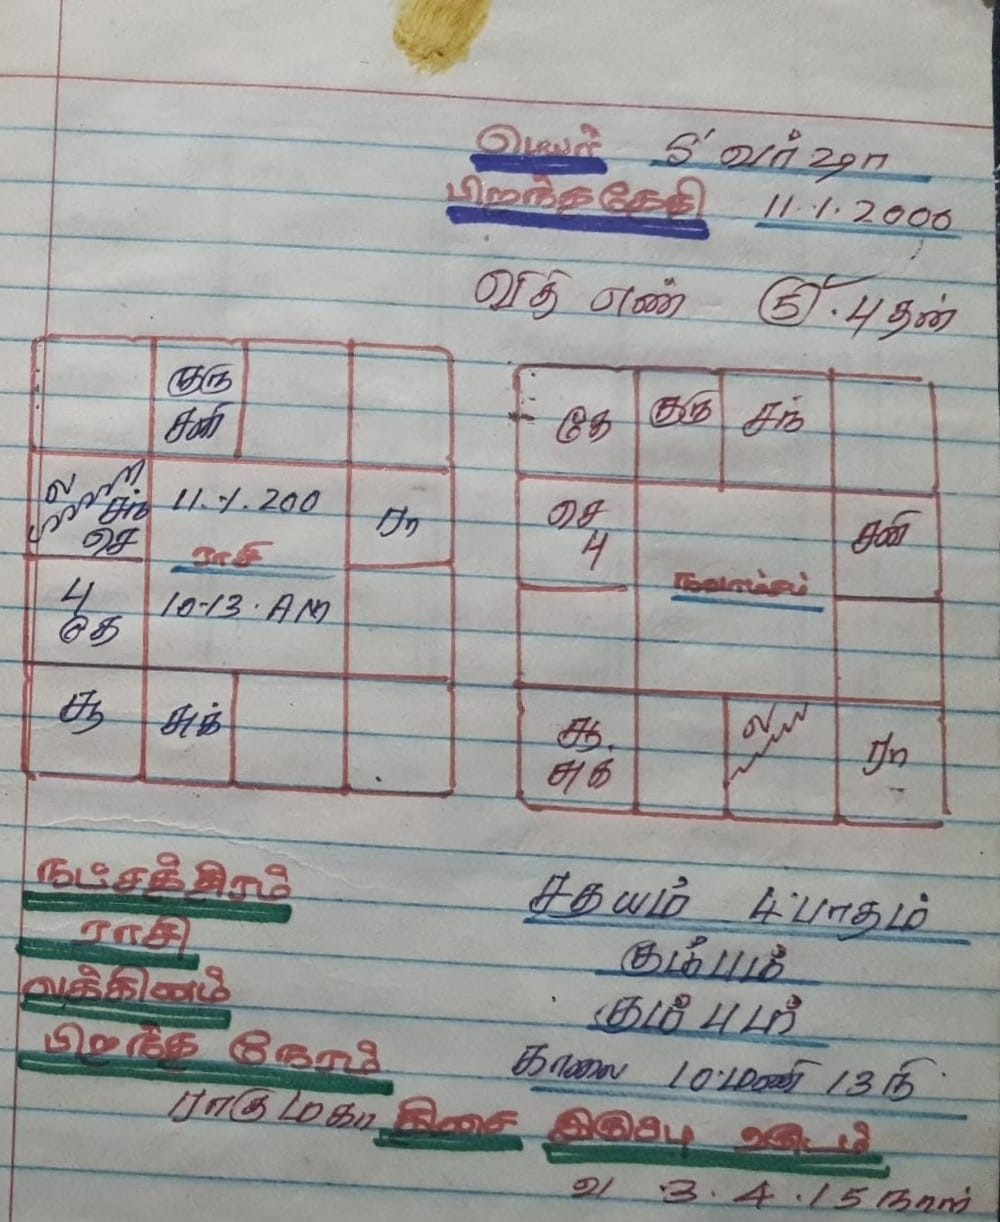 பெயர் S வர்ஷா
பிறந்ததேதி 11.1.2000
விதி எண் 5. 4தன்
குரு
சனி
ல
சந்
செ
11.1.200
ராசி
10-13. AM
ரா
பு
கே
சூ
சுக்
கே குரு சந்
செ
பு
சனி
நவாம்சம்
சூ.
சுக
ல
ரா
நட்சத்திரம் சதயம் 4.பாதம்
ராசி கும்பம்
லக்கினம் கும்பம்
பிறந்த நேரம் காலை 10.மணி 13நி
ராகுமகா திசை இருப்பு வருடம்
வ .3.4.15நாள்